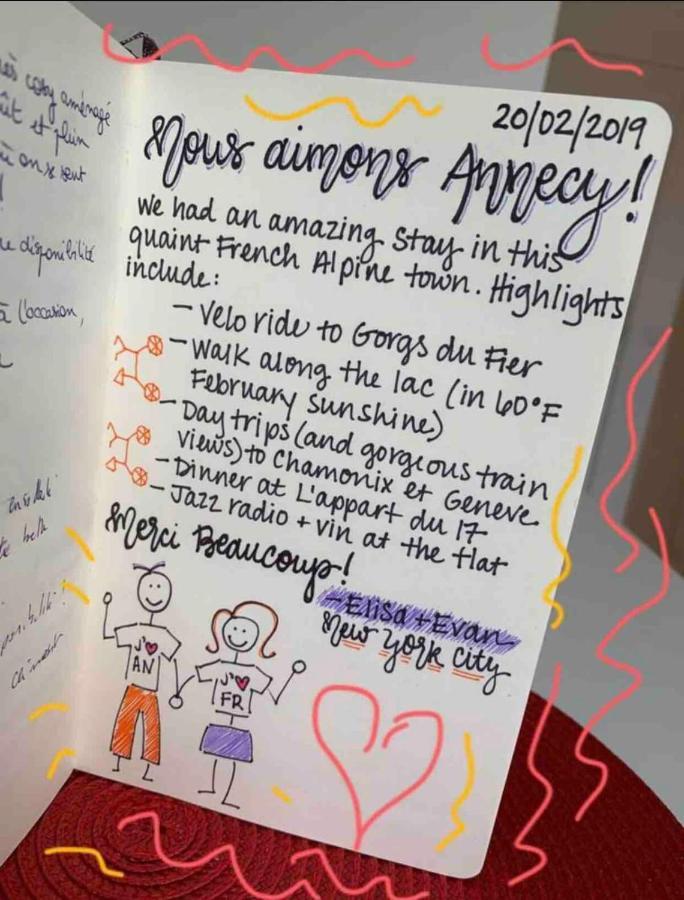 cosy aménagé
et plein
où on se sent
disponibilité
à l'occasion,
20/02/2019
Nous aimons Annecy!
We had an amazing stay in this
quaint French Alpine town. Highlights
include:
- Velo ride to Gorgs du Fier
- Walk along the lac (in 60°F
February sunshine)
- Day trips (and gorgeous train
views) to Chamonix et Geneve
- Dinner at L'appart du 17
- Jazz radio + vin at the flat
Merci Beaucoup!
- Elisa + Evan -
New York City
J'♥
AN
J'♥
FR